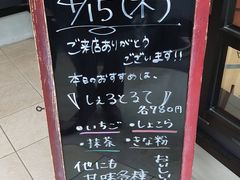 4/15(木)
ご来店ありがとう
ございます!!
本日のおすすめは、
しぇるとるて
各780円
・いちご ・しょこら
・抹茶 ・きな粉
他にも おいしい
甘味多種